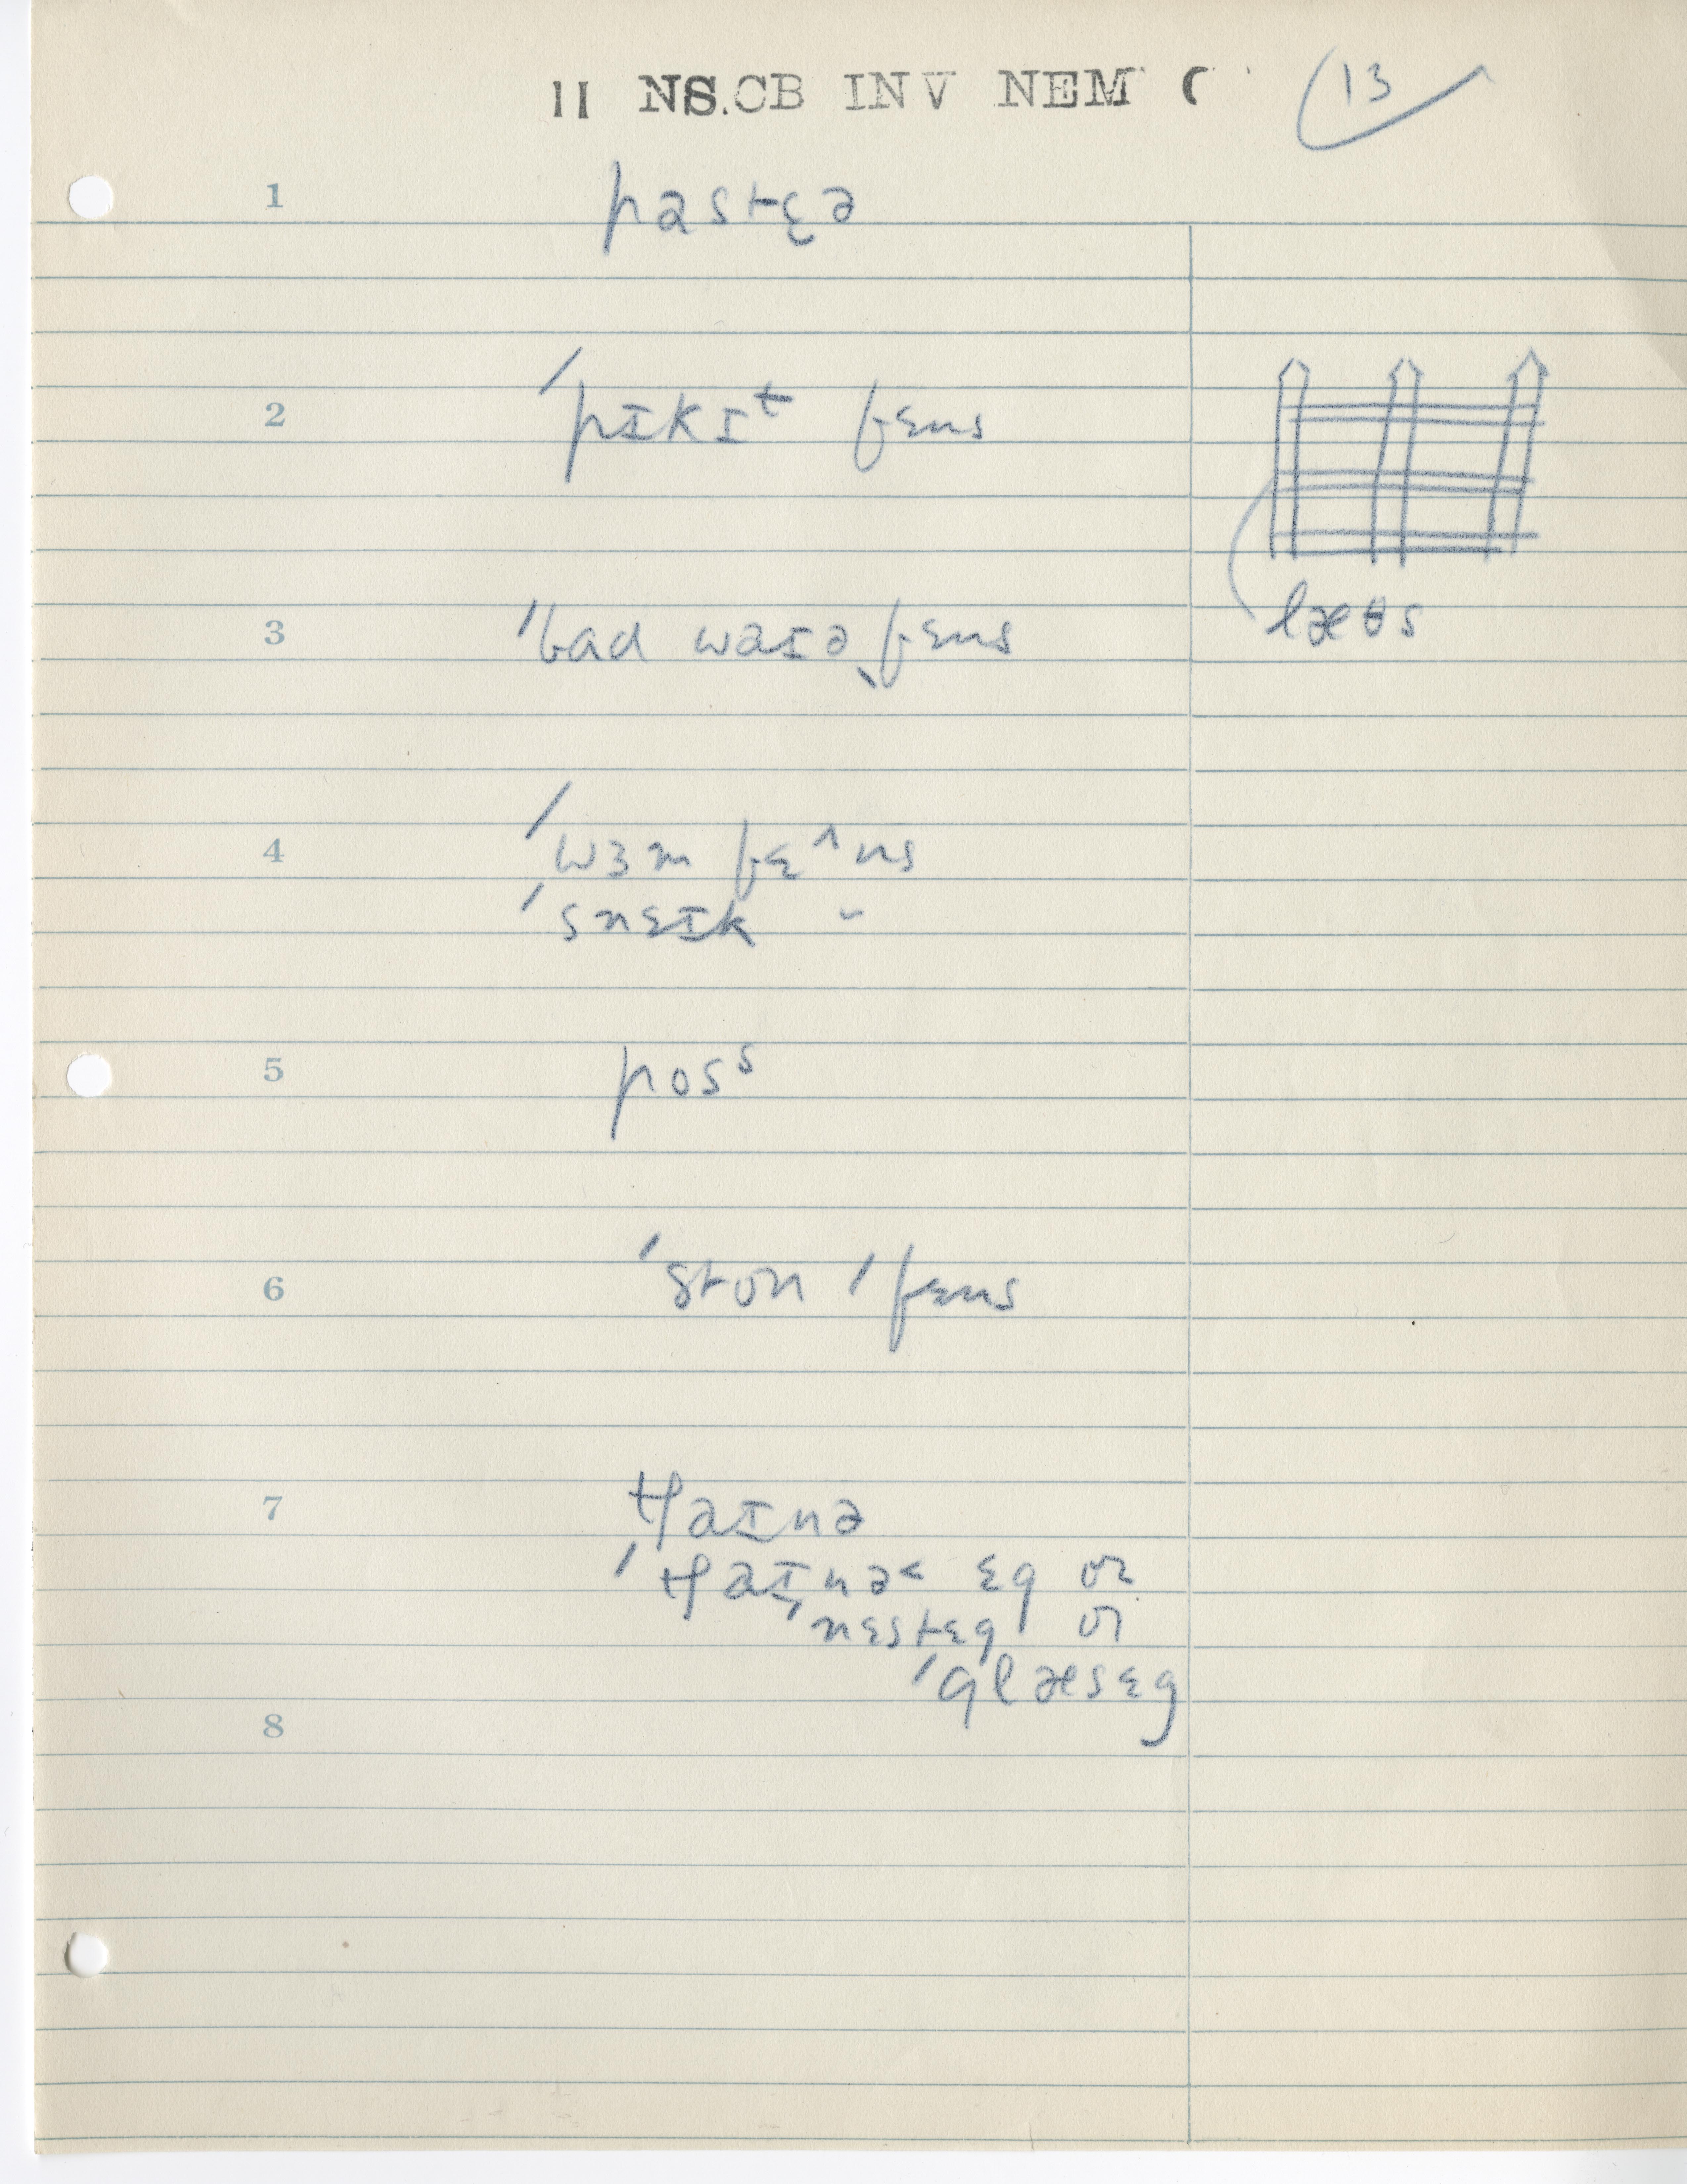 11 NS.CB INV NEM C
13
1 pastʃə
2 ˈpɪkɪᵗ fɛns
læθs
3 ˈbad waɪə ˌfɛns
4 ˈwɜm fɛ^ns
ˈsnɛɪk "
5 posˢ
6 ˈston ˈfɛns
7 tʃaɪnə
ˈtʃaɪnə< ɛg or
ˈnɛstɛg or
ˈglæsɛg
8